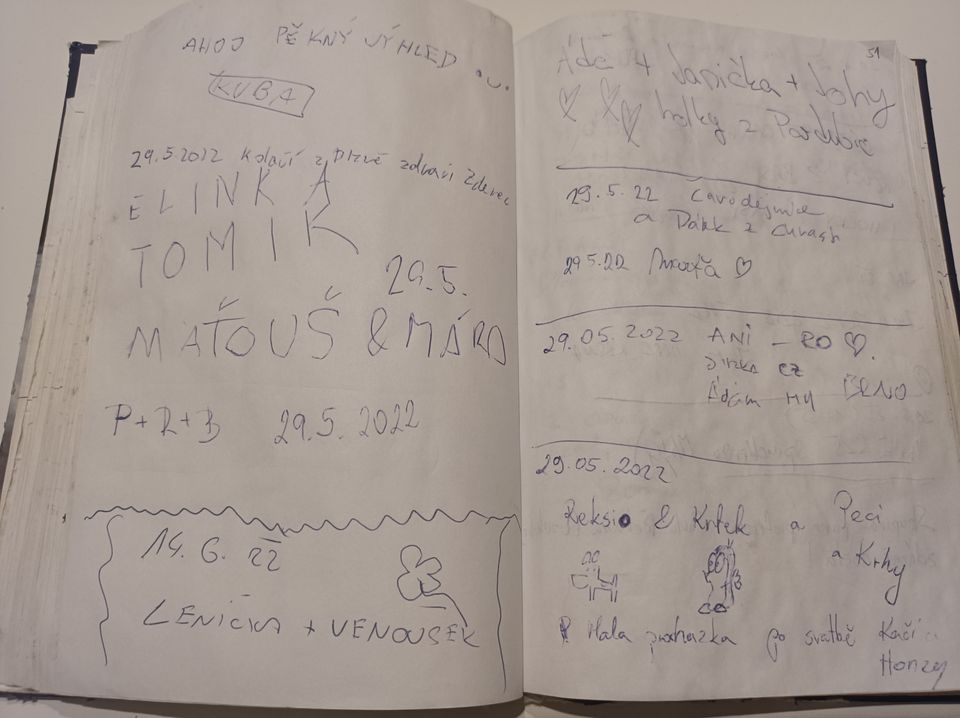 AHOJ PĚKNÝ VÝHLED
KUBA
29.5.2022 Koláčí z Plzně zdraví Zderec
ELINKA
TOMIK
29.5.
MAŤOUŠ & MÁRA
P+R+B 29.5.2022
14.6.22
LENIČKA + VENOUSEK
51
Áďa 4 Janička + Johy
holky z Pardubic
29.5.22 Čarodejnice
a Dárek z
29.5.22
29.05.2022 ANI - RO
CZ
Ádám HU BRNO
29.05.2022
Reksio & Krtek a Peci
a Krhy
Mala prohazka po svatbě Kačí a
Honzy